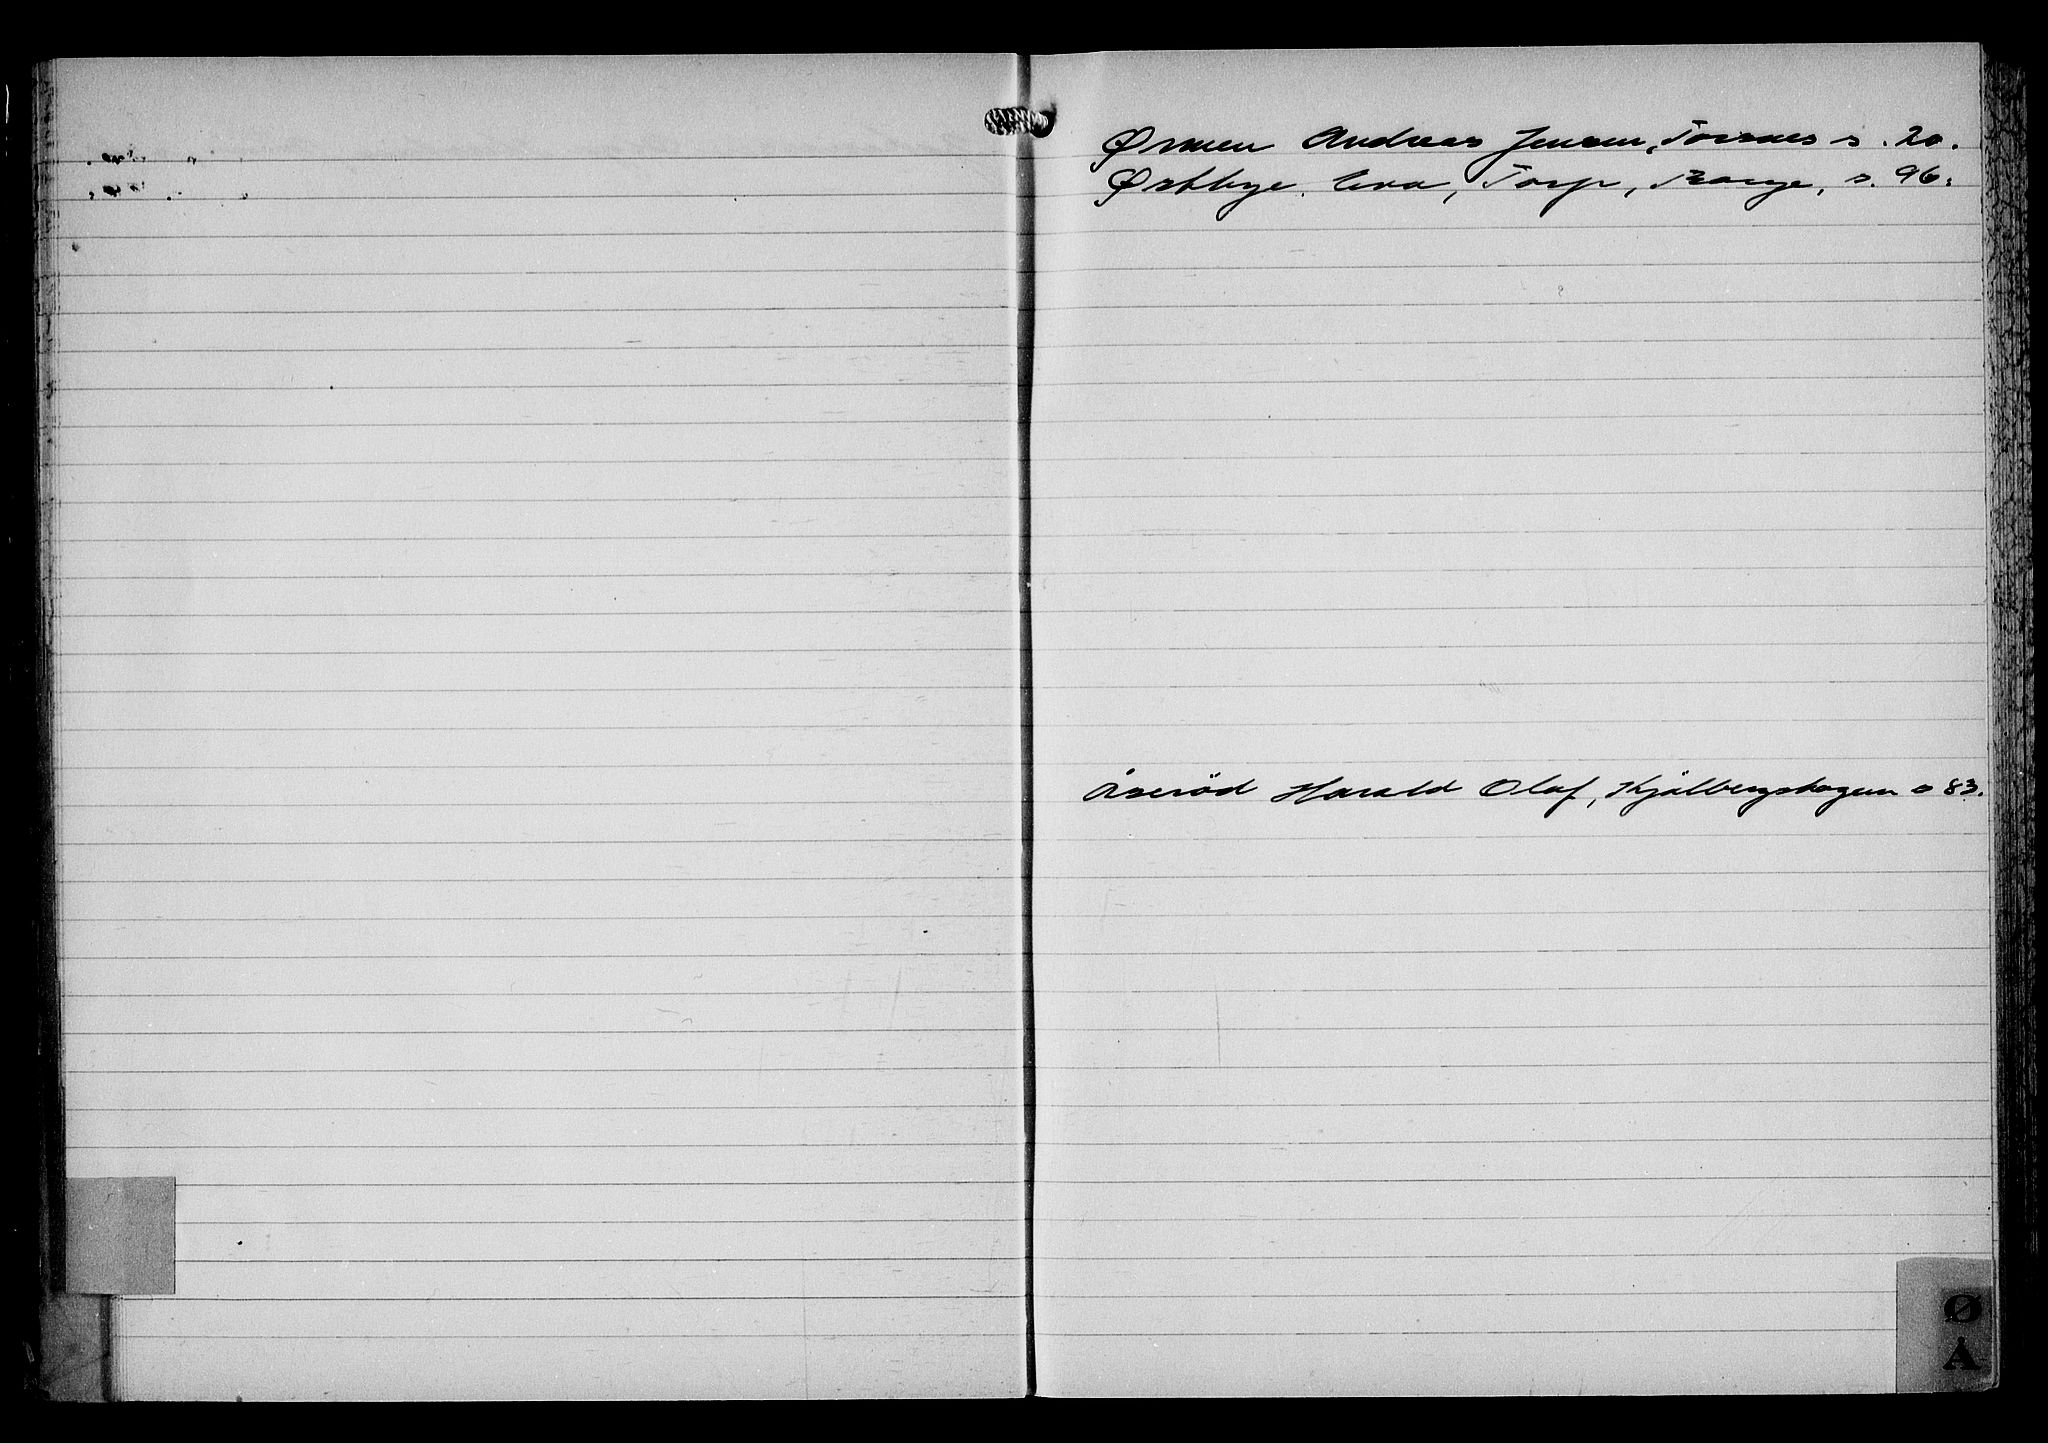 Ørmen Andreas Jensen, Torsnes s. 20.
Østbye. Eva, Torp, Borge, s. 96.
Åserød Harald Olaf, Kjølbergskogen s 83.
Ø
Å